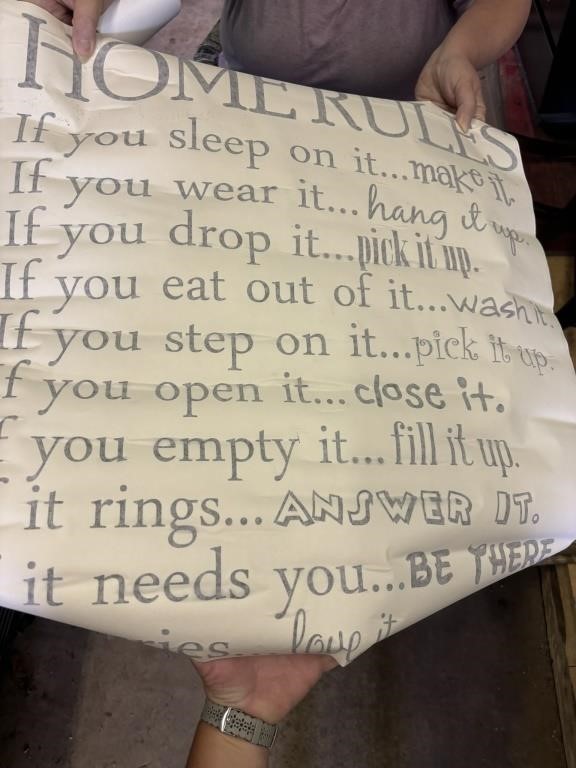 HOME RULES
If you sleep on it...make it.
If you wear it...hang it up.
If you drop it...pick it up.
If you eat out of it...wash it.
If you step on it...pick it up.
f you open it...close it.
you empty it...fill it up.
it rings...ANSWER IT.
it needs you...BE THERE
ries...love it